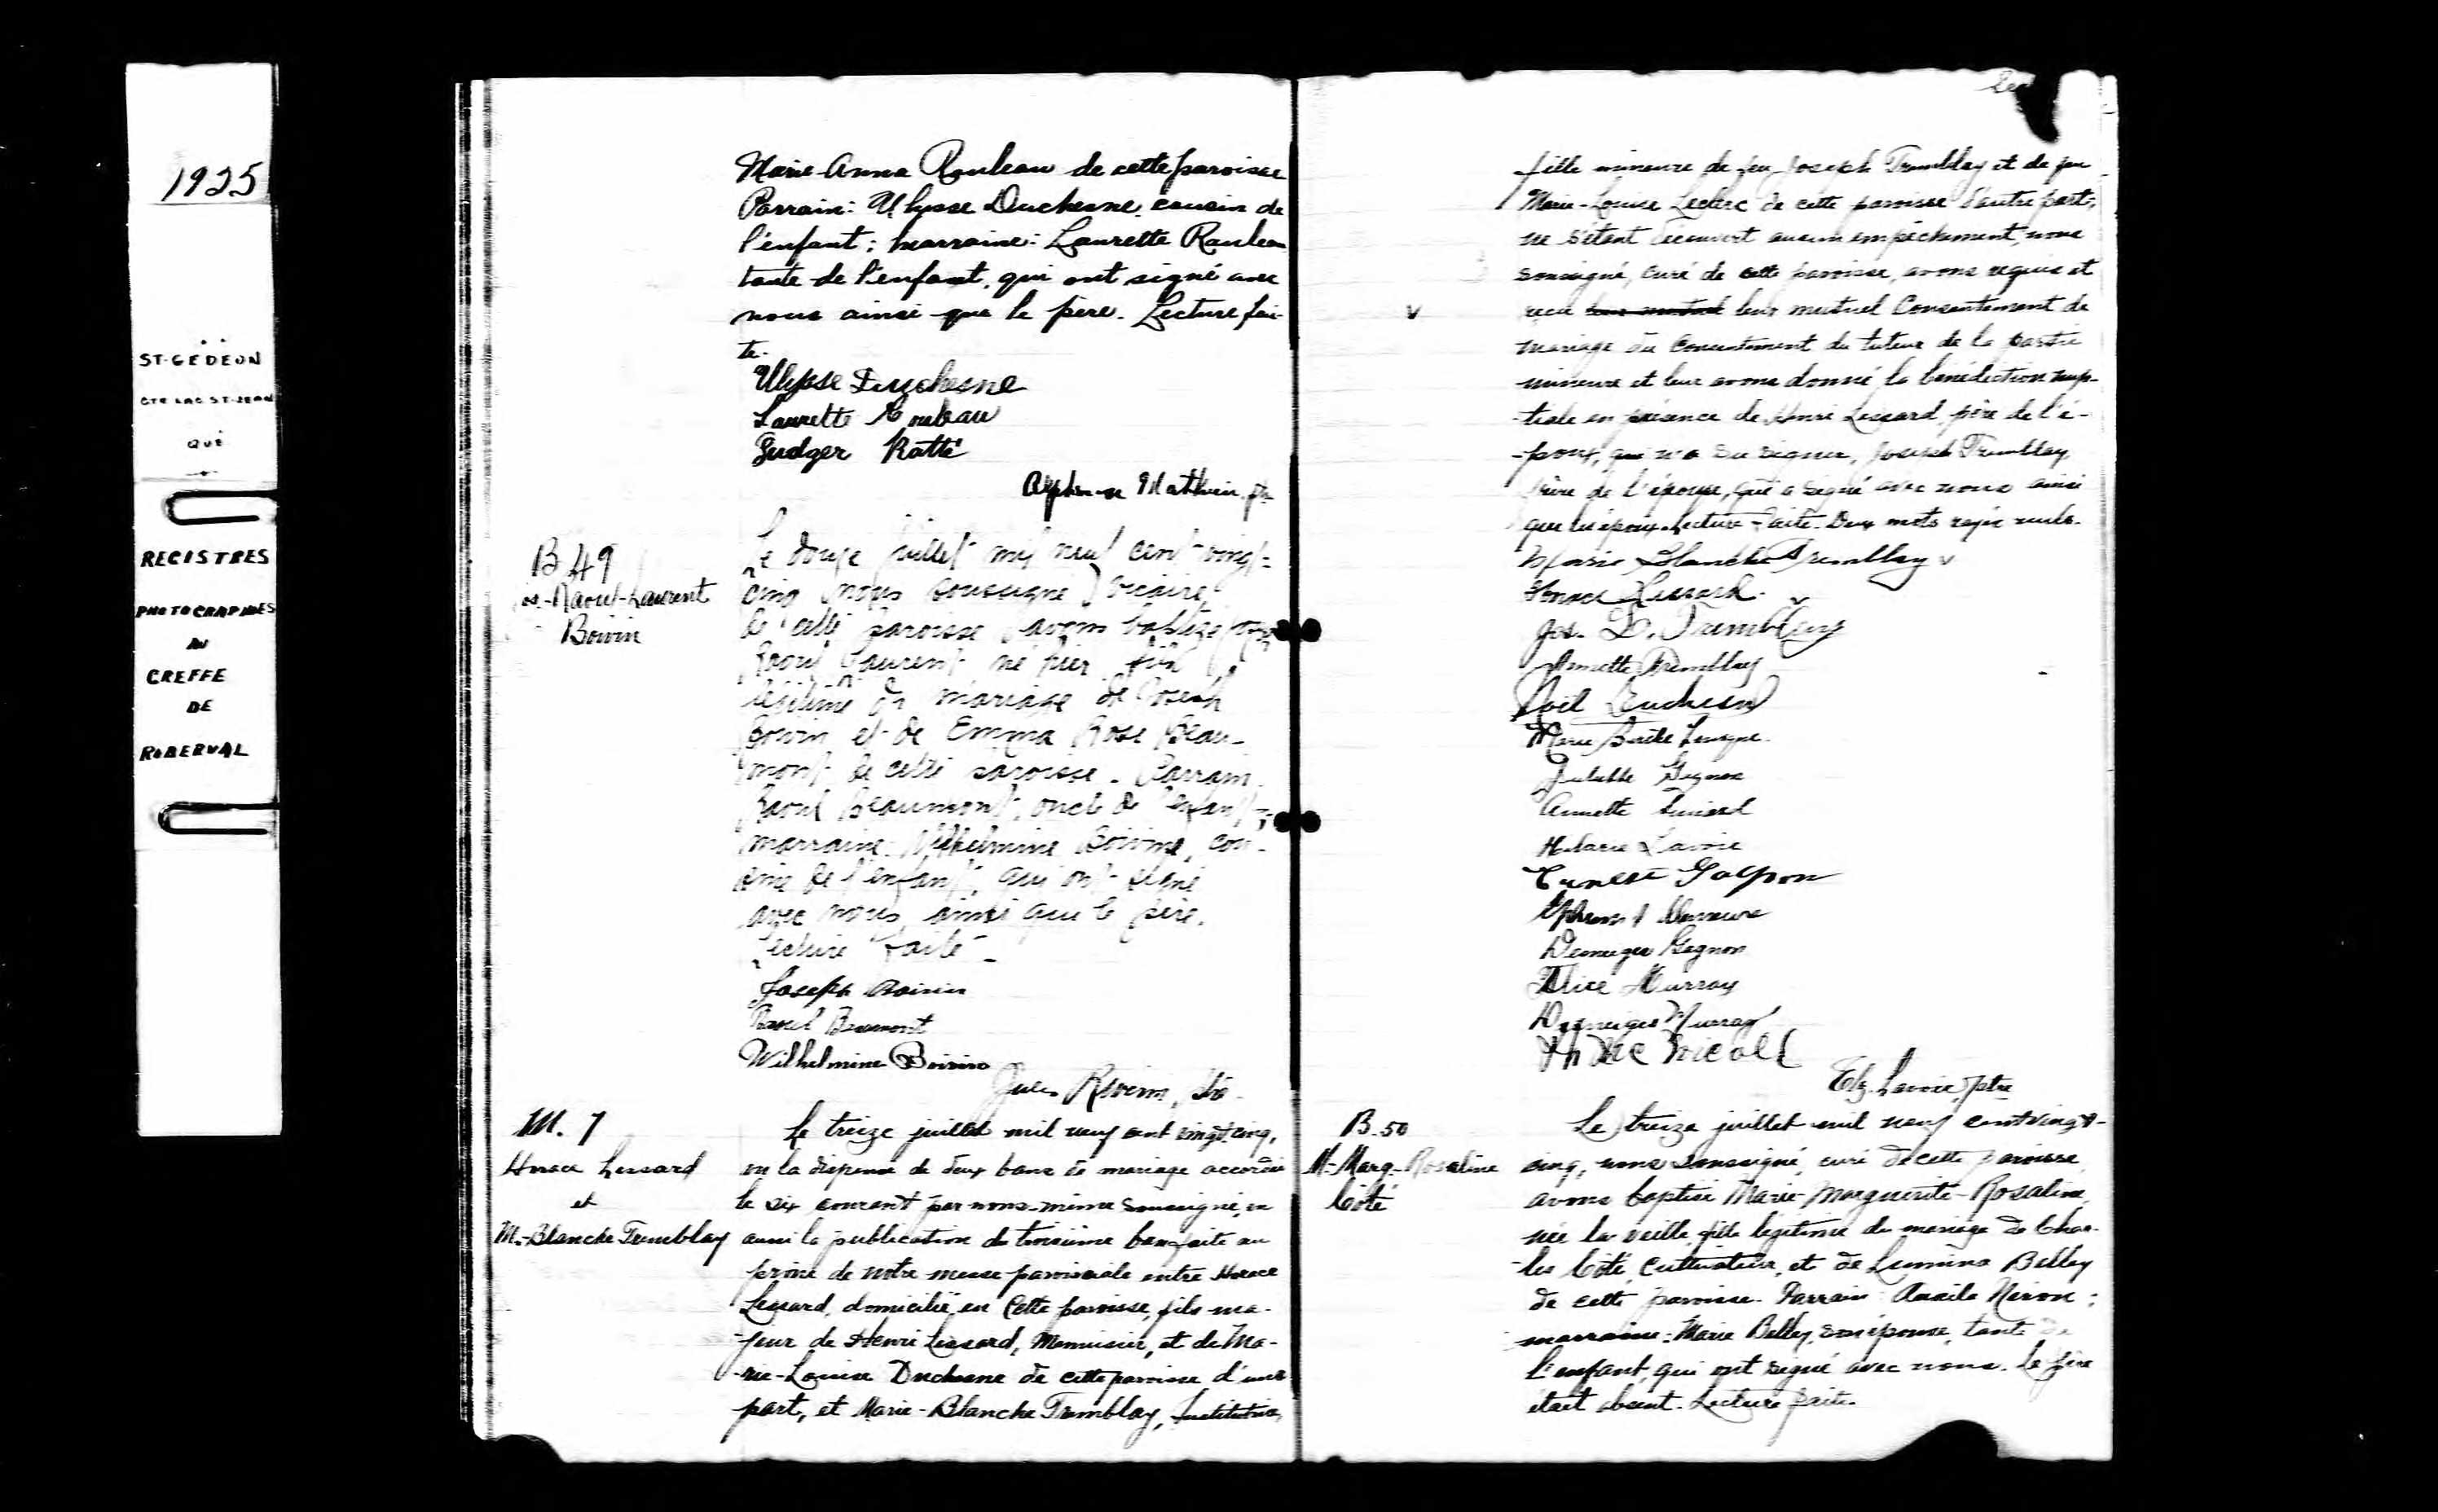 1925
ST-GEDEON
CTE LAC ST-JEAN
QUÉ
REGISTRES
PHOTOGRAPHIÉS
AU
GREFFE
DE
ROBERVAL
Marie-Anna Rouleau de cette paroisse
Parrain: Ulysse Duchesne, cousin de
l'enfant; marraine: Laurette Rouleau
tante de l'enfant, qui ont signé avec
nous ainsi que le père. Lecture fai-
te.
Ulysse Duchesne
Laurette Rouleau
Gudger Ratté
Alphonse Mathieu, ptr
B 49
Jos.-Raoul-Laurent
Boivin
Le douze juillet mil neuf cent vingt-
cinq nous soussigné, vicaire
de cette paroisse avons baptizé Joseph
Raoul Laurent né hier fils
légitime du mariage de Joseph
Boivin et de Emma Rose Beau-
mont de cette paroisse. Parrain
Raoul Beaumont, oncle de l'enfant;
marraine: Wilhelmine Boivin, cou-
sine de l'enfant, qui ont signé
avec nous ainsi que le père.
Lecture faite -
Joseph Boivin
Raoul Beaumont
Wilhelmine Boivin
Jules , ptre
M. 7
Horace Lessard
et
M.-Blanche Tremblay
Le treize juillet mil neuf cent vingt-cinq,
vu la dispense de deux bans de mariage accordée
le six courant par nous-même soussigné, vu
aussi la publication du troisième ban faite au
prône de notre messe paroissiale entre Horace
Lessard, domicilié en cette paroisse, fils ma-
jeur de Henri Lessard, Menuisier, et de Ma-
rie-Louise Duchesne de cette paroisse d'une
part, et Marie-Blanche Tremblay, Institutrice,
fille mineure de feu Joseph Tremblay et de feu
Marie-Louise Leclerc de cette paroisse d'autre part;
ne s'étant découvert aucun empêchement, nous
soussigné, curé de cette paroisse, avons requis et
reçu leur mutuel leur mutuel Consentement de
mariage du consentement du tuteur de la partie
mineure et leur avons donné la bénédiction nup-
-tiale en présence de Henri Lessard, père de l'é-
-poux, qui n'a su signer, Joseph Tremblay,
frère de l'épouse, qui a signé avec nous ainsi
que les époux. Lecture faite. Deux mots rayés nuls.
Marie Blanche Tremblay
Horace Lessard
Jos. D. Tremblay
Annette Tremblay
Noël Duchesne
Marie Berthe
Juliette Gagnon
Annette
Hilaire Lavoie
Ernest Gagnon

Gagnon
Alice Murray
Murray

Elz. Lavoie, ptre
B-50
M-Marg.-Rosaline
Côté
Le treize juillet mil neuf cent vingt-
cinq, nous soussigné, curé de cette paroisse
avons baptisé Marie-Marguerite-Rosaline,
née la veille, fille légitime du mariage de Char-
-les Côté, cultivateur, et de Lumina Belley
de cette paroisse. Parrain: Néron;
marraine: Marie Belley, son épouse, tante de
l'enfant, qui ont signé avec nous. Le père
était absent. Lecture faite.